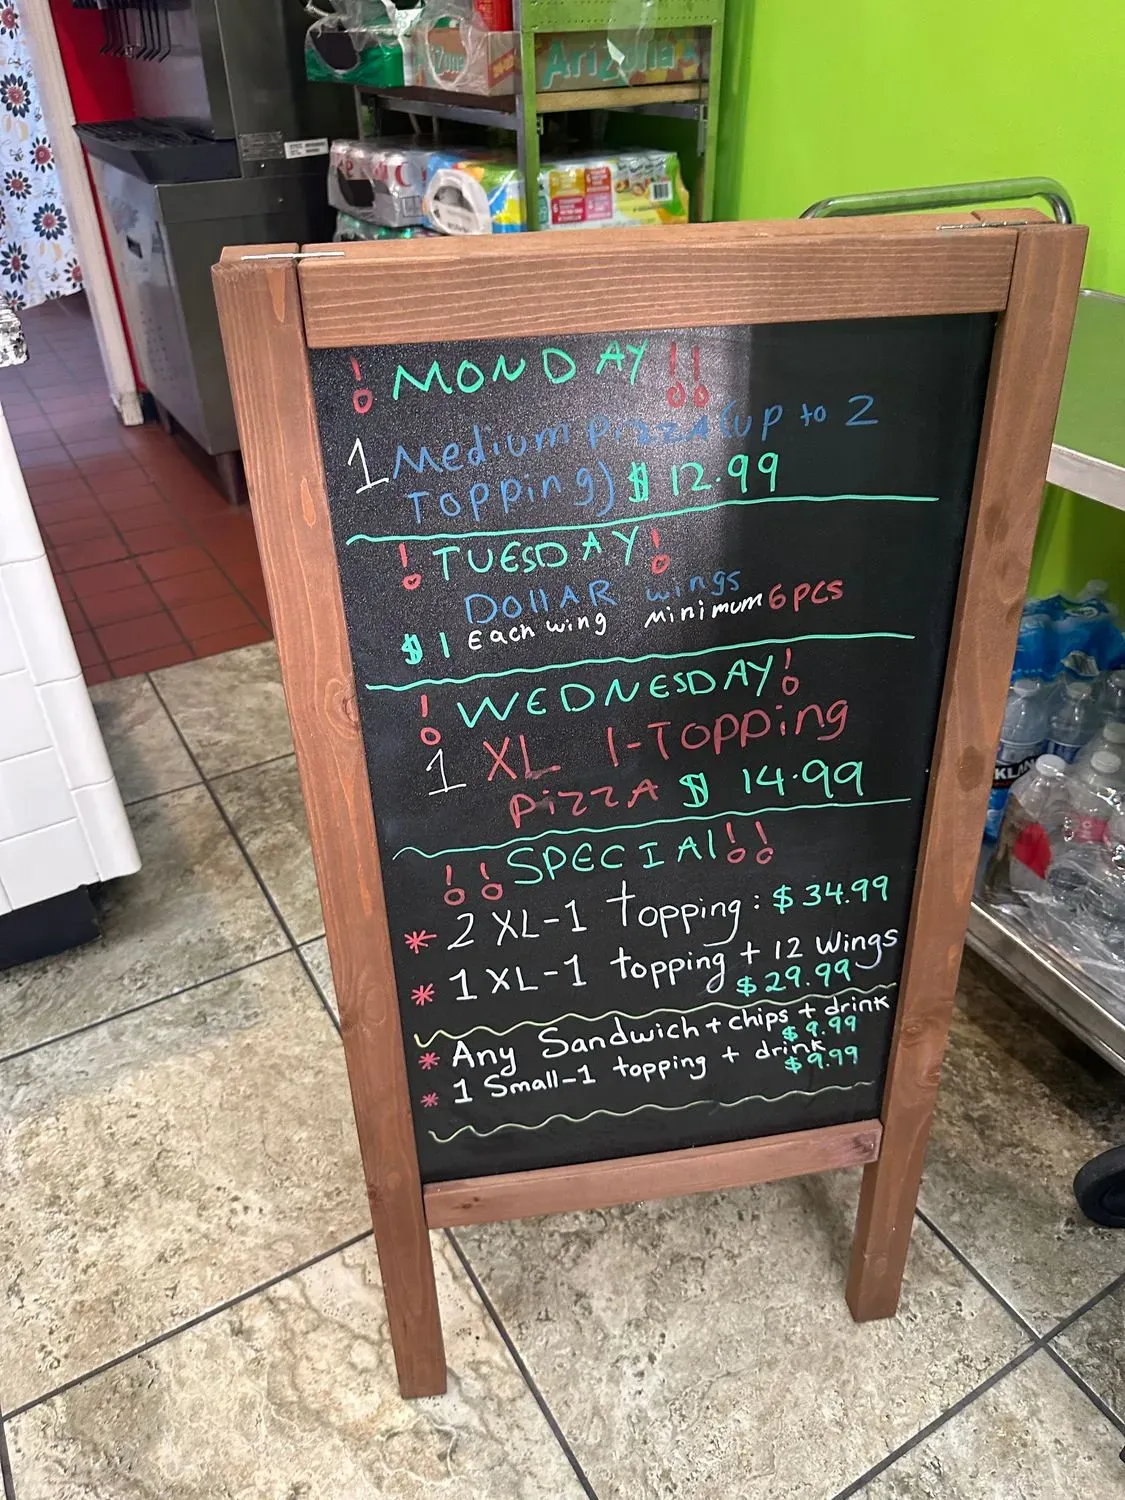 Arizona
! MONDAY !!
1 Medium pizza (up to 2
Topping) $ 12.99
! TUESDAY !
DollAR wings
$1 Each wing Minimum 6 PCS
! WEDNESDAY !
1 XL 1-Topping
pizzA $ 14.99
!! SPECIAl !!
* 2 XL-1 topping: $34.99
* 1 XL-1 topping + 12 Wings
$29.99
* Any Sandwich + chips + drink
$9.99
* 1 Small-1 topping + drink
$9.99